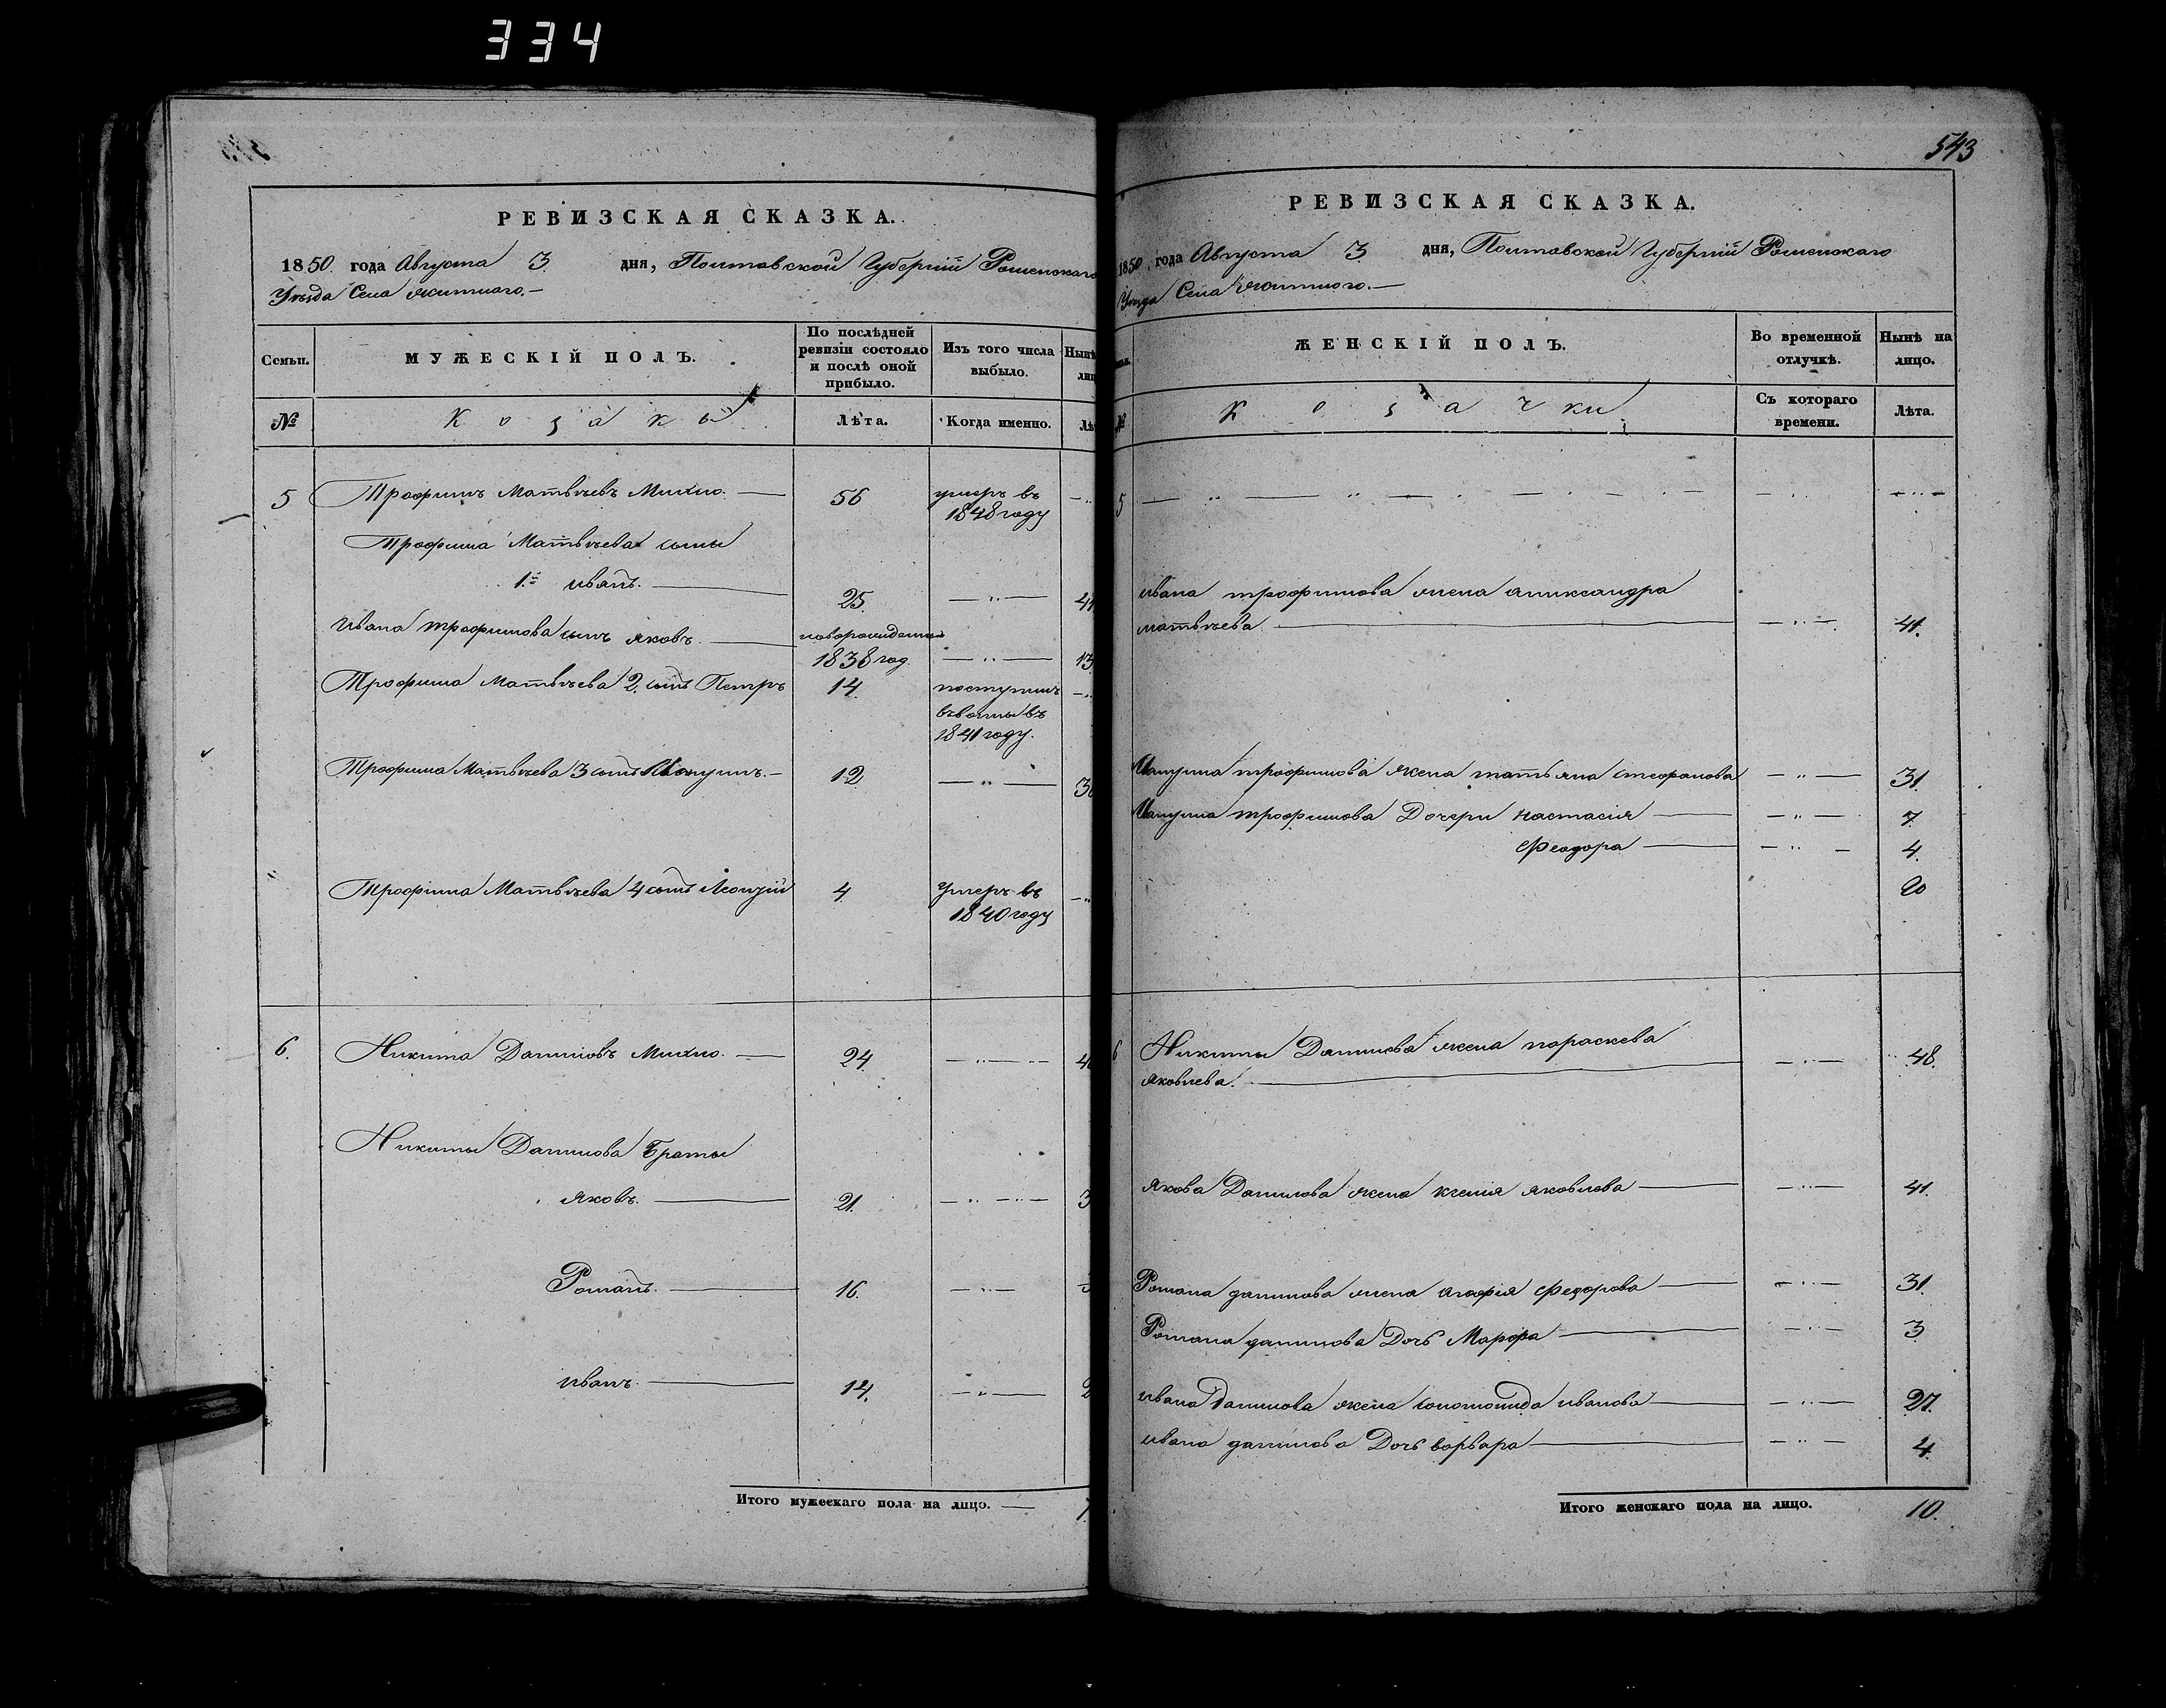 334
РЕВИЗСКАЯ СКАЗКА.
1850 года Августа 3 дня, Полтавской Губерніи Роменскаго
Уѣзда Села Житнаго.—
Семьи.
МУЖЕСКІЙ ПОЛЪ.
По послѣдней ревизіи состояло и послѣ оной прибыло.
Изъ того числа выбыло.
№
Козаки
Лѣта.
Когда именно.
5 Трофимъ Матвѣевъ Михно.— 56 умеръ въ
1848 году
Трофима Матвѣева сыны
1.й иванъ.— 25.
Ивана трофимова сынъ яковъ.— новорожденный
1838 год. 13
Трофима Матвѣева 2. сынъ Петръ 14. поступилъ
въ
1841 году.
Трофима Матвѣева 3 сынъ 12
Трофима Матвѣева 4 сынъ Леонтій 4 Умеръ въ
1840 году
6. Никита Даниловъ Михно.— 24
Никиты Данилова Браты
яковъ.— 21.
Романъ.— 16.
иванъ.— 14.
Итого мужескаго пола на лицо.—
543
РЕВИЗСКАЯ СКАЗКА.
1850 года Августа 3 дня, Полтавской Губерніи Роменскаго
Уѣзда Села Житнаго.—
ЖЕНСКІЙ ПОЛЪ.
Во временной отлучкѣ.
Нынѣ на лицо.
№
Козачки
Съ котораго времени.
Лѣта.
5
ивана трофимова жена александра
матвѣева — 41.
трофимова жена татьяна стефанова 31.
трофимова Дочери настасія — 7.
Феодора — 4.
20
6 Никиты Данилова жена параскева
яковлева.— 48.
якова Данилова жена ксенія яковлева — 41.
Романа данилова жена агафія Федорова — 31.
Романа данилова Дочь Марфа — 3
ивана Данилова жена соломонида иванова — 27.
ивана данилова Дочь варвара — 4.
Итого женскаго пола на лицо. 10.